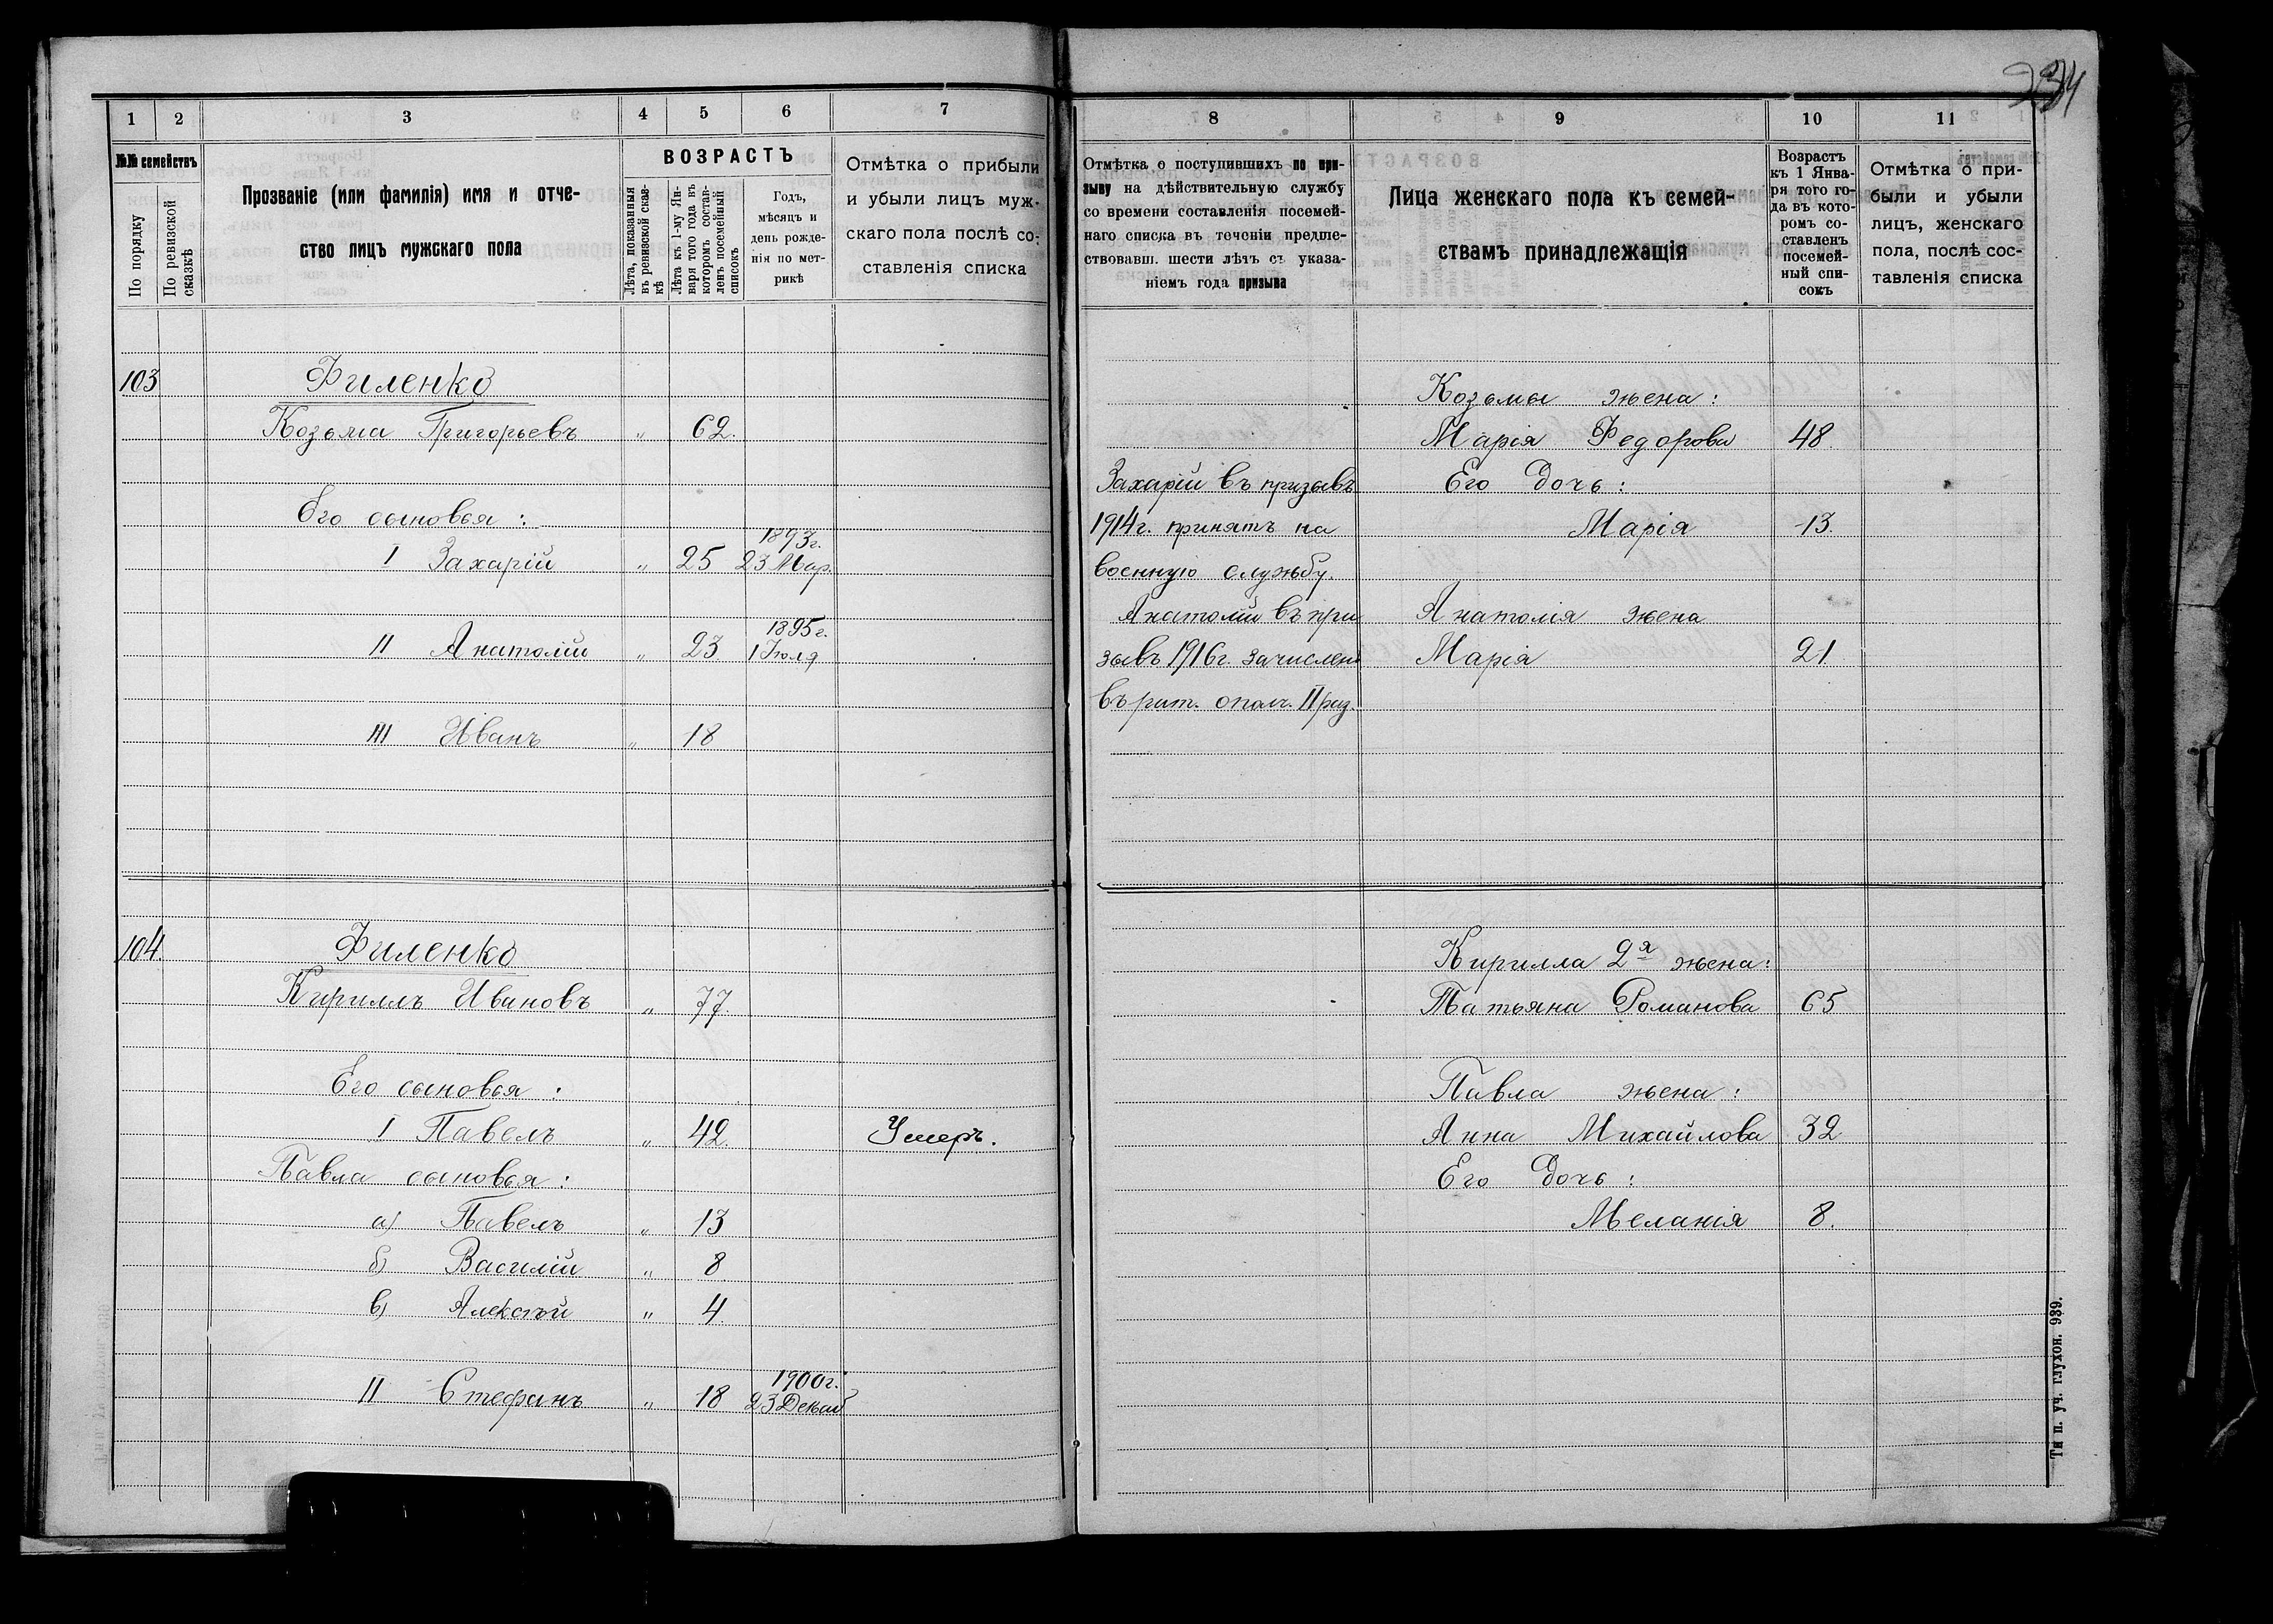 234
1
2
3
4
5
6
7
№№ семействъ
По порядку
По ревизской сказкѣ
Прозваніе (или фамилія) имя и отче-
ство лицъ мужскаго пола
ВОЗРАСТЪ
Лѣта, показанныя
въ ревизской сказ-
кѣ
Лѣта къ 1-му Ян-
варя того года въ
которомъ состав-
ленъ посемейный
списокъ
Годъ,
мѣсяцъ и
день рожде-
нія по мет-
рикѣ
Отмѣтка о прибыли
и убыли лицъ муж-
скаго пола послѣ со-
ставленія списка
103
Филенко
Козьма Григорьевъ " 62.
Его сыновья:
1893г.
I Захарій " 25 23 Мар.
1895г.
II Анатолій " 23 1 Іюля
III Иванъ " 18
104.
Филенко
Кириллъ Ивановъ " 77.
Его сыновья:
I Павелъ " 42. Умеръ.
Павла сыновья:
а) Павелъ " 13
б) Василій " 8
в) Алексѣй " 4.
1900г.
II Стефанъ " 18 23 Декаб
8
9
10
11
Отмѣтка о поступившихъ по при-
зыву на дѣйствительную службу
со времени составленія посемей-
наго списка въ теченіи предше-
ствовавш. шести лѣтъ съ указа-
ніемъ года призыва
Лица женскаго пола къ семей-
ствамъ принадлежащія
Возрастъ
къ 1 Янва-
ря того го-
да въ кото-
ромъ со-
ставленъ
посемей-
ный спи-
сокъ
Отмѣтка о при-
были и убыли
лицъ, женскаго
пола, послѣ сос-
тавленія списка
Козьмы жена:
Марія Федорова 48.
Захарій въ призывъ Его дочь:
1914г. принятъ на Марія 13.
военную службу.
Анатолій въ при Анатолія жена
зывъ 1916г. зачисленъ Марія 21
въ рат. опол. II раз.
Кирилла 2я жена:
Татьяна Романова 65
Павла жена:
Анна Михайлова 32
Его дочь:
Меланія 8.
Тип. уч. глухон. 939.